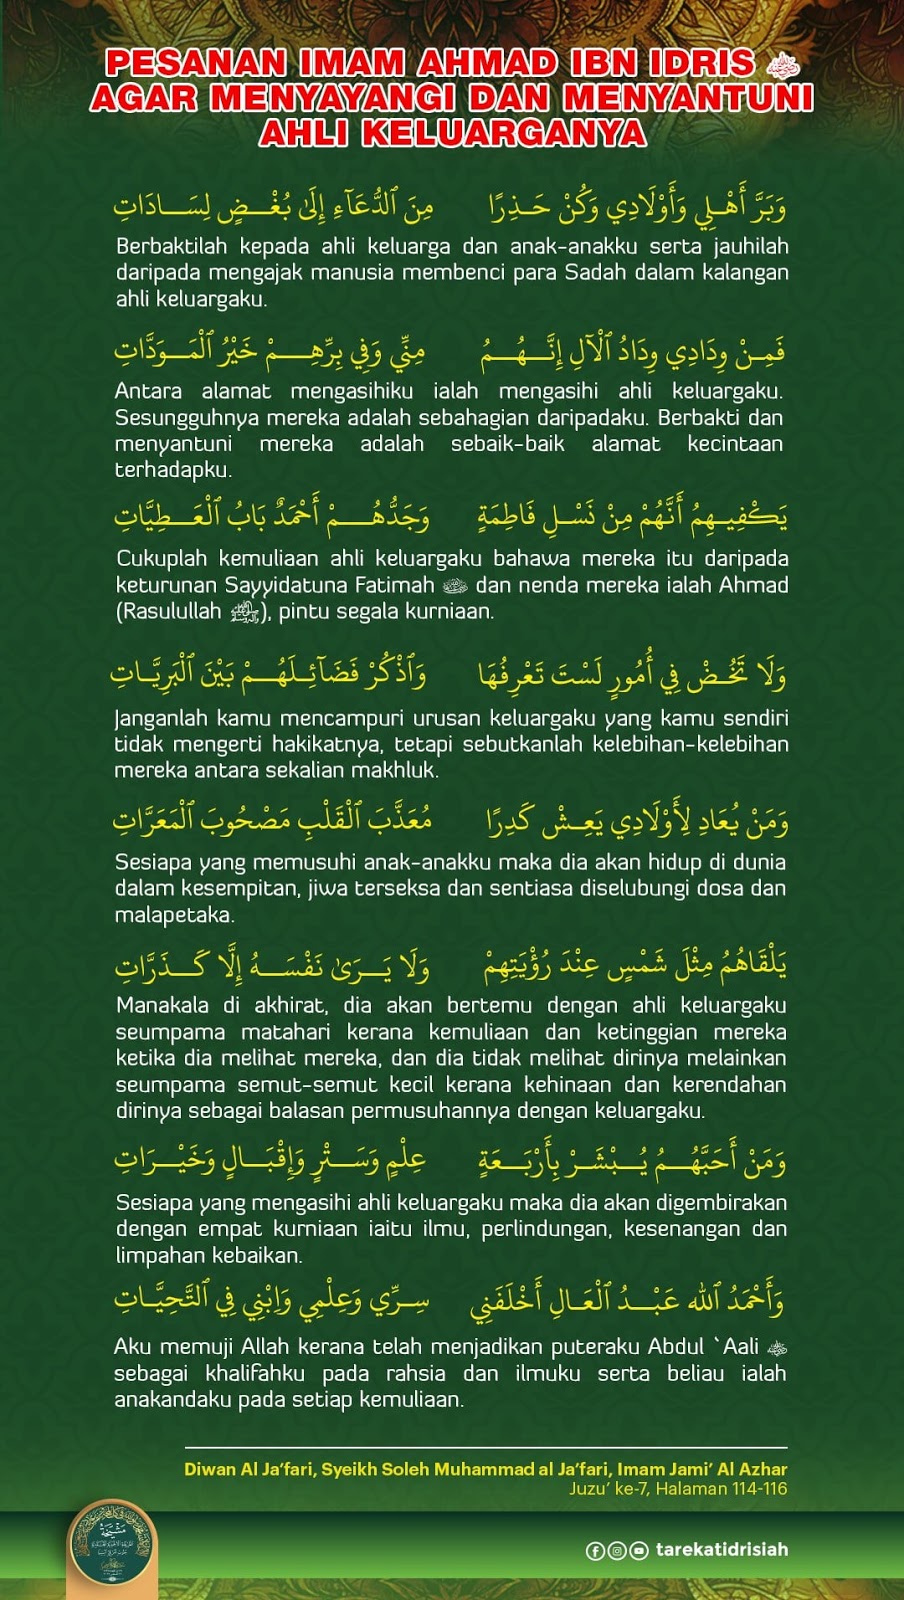 PESANAN IMAM AHMAD IBN IDRIS
AGAR MENYAYANGI DAN MENYANTUNI
AHLI KELUARGANYA
وَبَرَّ أَهْلِي وَأَوْلَادِي وَكُنْ حَذِرًا مِنَ ٱلدُّعَآءِ إِلَىٰ بُغْضٍ لِسَادَاتِ
Berbaktilah kepada ahli keluarga dan anak-anakku serta jauhilah
daripada mengajak manusia membenci para Sadah dalam kalangan
ahli keluargaku.
فَمِنْ وِدَادِي وِدَادُ ٱلْآلِ إِنَّهُمُ مِنِّي وَفِي بِرِّهِمْ خَيْرُ ٱلْمَوَدَّاتِ
Antara alamat mengasihiku ialah mengasihi ahli keluargaku.
Sesungguhnya mereka adalah sebahagian daripadaku. Berbakti dan
menyantuni mereka adalah sebaik-baik alamat kecintaan
terhadapku.
يَكْفِيهِمُ أَنَّهُمْ مِنْ نَسْلِ فَاطِمَةٍ وَجَدُّهُمْ أَحْمَدٌ بَابُ ٱلْعَطِيَّاتِ
Cukuplah kemuliaan ahli keluargaku bahawa mereka itu daripada
keturunan Sayyidatuna Fatimah dan nenda mereka ialah Ahmad
(Rasulullah ﷺ), pintu segala kurniaan.
وَلَا تَخُضْ فِي أُمُورٍ لَسْتَ تَعْرِفُهَا وَٱذْكُرْ فَضَآئِلَهُمْ بَيْنَ ٱلْبَرِيَّاتِ
Janganlah kamu mencampuri urusan keluargaku yang kamu sendiri
tidak mengerti hakikatnya, tetapi sebutkanlah kelebihan-kelebihan
mereka antara sekalian makhluk.
وَمَنْ يُعَادِ لِأَوْلَادِي يَعِشْ كَدِرًا مُعَذَّبَ ٱلْقَلْبِ مَصْحُوبَ ٱلْمَعَرَّاتِ
Sesiapa yang memusuhi anak-anakku maka dia akan hidup di dunia
dalam kesempitan, jiwa terseksa dan sentiasa diselubungi dosa dan
malapetaka.
يَلْقَاهُمُ مِثْلَ شَمْسٍ عِنْدَ رُؤْيَتِهِمْ وَلَا يَرَىٰ نَفْسَهُ إِلَّا كَذَرَّاتِ
Manakala di akhirat, dia akan bertemu dengan ahli keluargaku
seumpama matahari kerana kemuliaan dan ketinggian mereka
ketika dia melihat mereka, dan dia tidak melihat dirinya melainkan
seumpama semut-semut kecil kerana kehinaan dan kerendahan
dirinya sebagai balasan permusuhannya dengan keluargaku.
وَمَنْ أَحَبَّهُمُ يُبْشَرْ بِأَرْبَعَةٍ عِلْمٍ وَسَتْرٍ وَإِقْبَالٍ وَخَيْرَاتِ
Sesiapa yang mengasihi ahli keluargaku maka dia akan digembirakan
dengan empat kurniaan iaitu ilmu, perlindungan, kesenangan dan
limpahan kebaikan.
وَأَحْمَدُ ٱلله عَبْدُ ٱلْعَالِ أَخْلَفَنِي سِرِّي وَعِلْمِي وَٱبْنِي فِي ٱلتَّحِيَّاتِ
Aku memuji Allah kerana telah menjadikan puteraku Abdul `Aali
sebagai khalifahku pada rahsia dan ilmuku serta beliau ialah
anakandaku pada setiap kemuliaan.
Diwan Al Ja’fari, Syeikh Soleh Muhammad al Ja’fari, Imam Jami’ Al Azhar
Juzu’ ke-7, Halaman 114-116
tarekatidrisiah